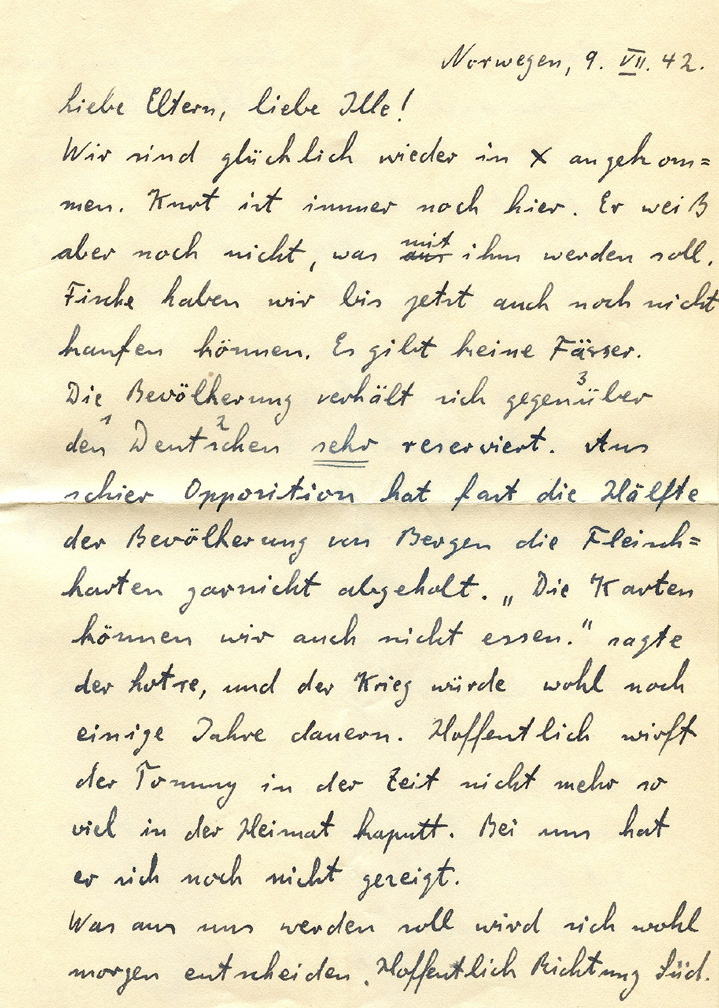 Norwegen, 9. VII. 42.
Liebe Eltern, liebe Ille!
Wir sind glücklich wieder in X angekom=
men. Kurt ist immer noch hier. Er weiß
aber noch nicht, was mit ihm werden soll.
Fische haben wir bis jetzt auch noch nicht
kaufen können. Es gibt keine Fässer.
Die Bevölkerung verhält sich gegenüber 3
den 1 Deutschen 2 sehr reserviert. Aus
schier Opposition hat fast die Hälfte
der Bevölkerung von Bergen die Fleisch=
karten garnicht abgeholt. „Die Karten
können wir auch nicht essen." sagte
der Lotse, und der Krieg würde wohl noch
einige Jahre dauern. Hoffentlich wirft
der Tommy in der Zeit nicht mehr so
viel in der Heimat kaputt. Bei uns hat
er sich noch nicht gezeigt.
Was aus uns werden soll wird sich wohl
morgen entscheiden. Hoffentlich Richtung Süd.